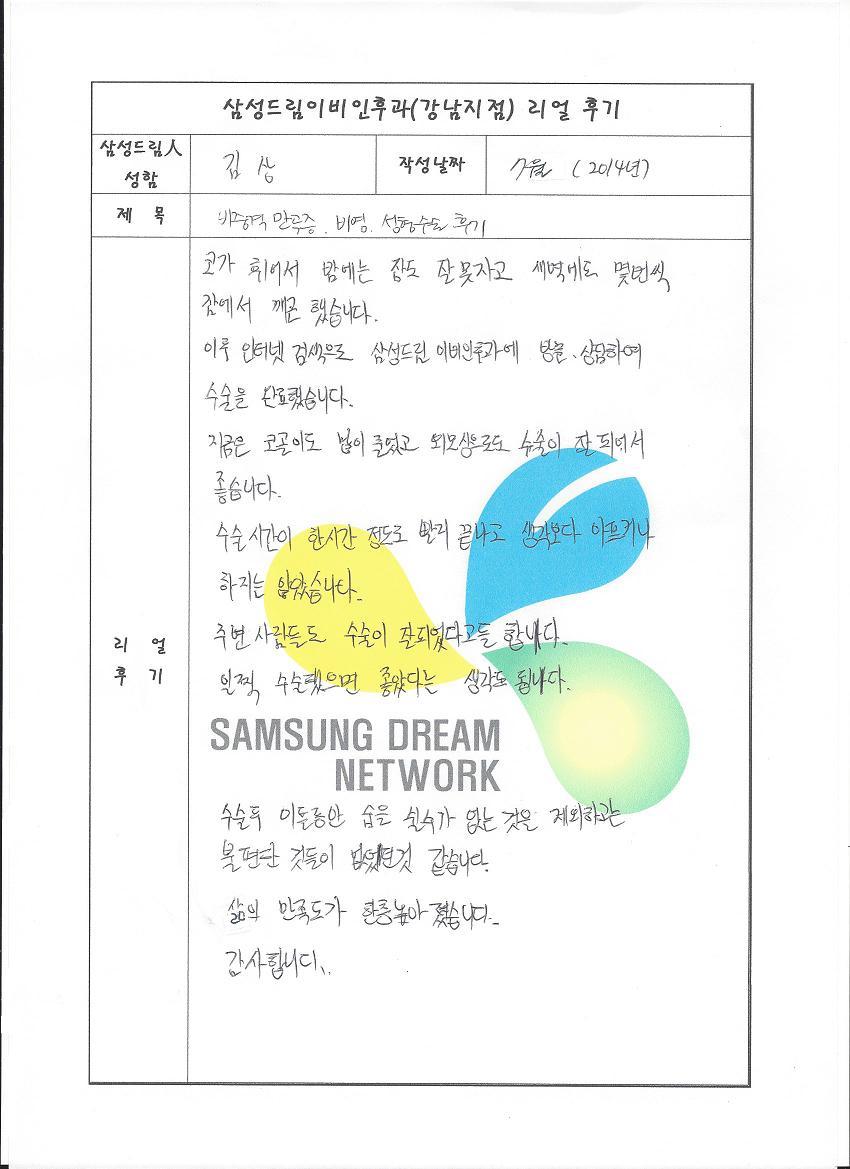 삼성드림이비인후과(강남지점) 리얼 후기
삼성드림人 성함
김 상
작성날짜
7월 (2014년)
제 목
비중격 만곡증. 비염. 성형수술 후기
코가 휘어서 밤에는 잠도 잘못자고 새벽에도 몇번씩
잠에서 깨곤 했습니다.
이후 인터넷 검색으로 삼성드림 이비인후과에 방문, 상담하여
수술을 완료했습니다.
지금은 코골이도 많이 줄었고 외모상으로도 수술이 잘 되어서
좋습니다.
수술시간이 한시간 정도로 빨리 끝나고 생각보다 아프거나
하지는 않았습니다.
주변 사람들도 수술이 잘되었다고들 합니다.
일찍 수술했으면 좋았다는 생각도 듭니다.
SAMSUNG DREAM
NETWORK
수술후 이틀동안 숨을 쉴수가 없는 것을 제외하고는
불편한 것들이 없었던것 같습니다.
삶의 만족도가 한층높아 졌습니다.
감사합니다..
리 얼
후 기